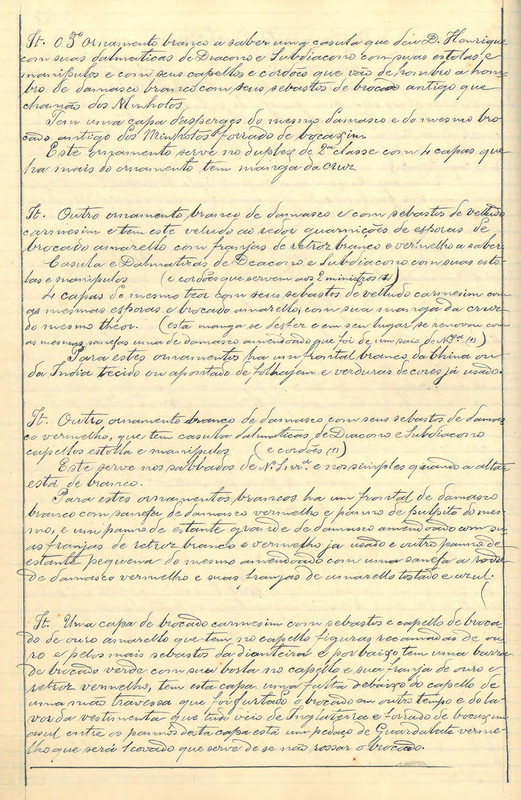 It. O 3º Ornamento branco a saber uma casula que deu D. Henrique
com suas dalmaticas de Deacono e Subdiacono com suas estolas e
manipulos e com seus capellos e cordões que vão de hombro a hom-
bro de damasco branco com seus sebastos de brocado antigo que
chamão dos Minhotos.
Tem uma capa d'asperges do mesmo damasco e do mesmo bro
cado antigo dos Minhotos forrado de bocaxim
Este ornamento serve no duplex de 2ª classe com 4 capas que
ha mais do ornamento tem manga da cruz
It. Outro ornamento branco de damasco e com sebastos de velludo
carmesim e tem este veludo ao redor guarnições de esporas de
brocado amarello com franjas de retroz branco e vermelho a saber
Casula e Dalmaticas de Deacono e Subdiacono com suas esto-
las e manipulos (e cordões que servem aos 2 ministros (1))
4 capas do mesmo teor com seus sebastos de velludo carmesim com
as mesmas esporas e brocado amarello, com sua manga da cruz
do mesmo théor. (esta manga se desfez e em seu lugar se renovou com
as mesmas sanefas uma de damasco amendoado que foi de um saio de N. Srª (1))
Para estes ornamentos ha um frontal branco da China ou
da India tecido ou apostado de folhajem e verduras de cores já usado.
It. Outro ornamento branco de damasco com seus sebastos de damas-
co vermelho, que tem casula dalmaticas de Deacono e Subdiacono
capellos estolla e manipulos (e cordões (1))
Este serve nos sabbados de N. Srª e nos simples quando a altar
está de branco.
Para estes ornamentos brancos ha um frontal de damasco
branco com sanefa de damasco vermelho e panno de pulpito do mes-
mo, e um panno de estante grande de damasco amendoado com su-
as franjas de retroz branco e vermelho ja usado e outro panno de
estante pequena do mesmo amendoado com uma sanefa a roda
de damasco vermelho e suas franjas de amarello tostado e azul.
It. Uma capa de brocado carmesim com sebastos e capello de broca
do de ouro amarello que tem no capello figuras recamadas de ou-
ro e pelos mais sebastos da dianteira e por baixo tem uma barra
de brocado verde com sua borla no capello e sua franja de ouro e
retroz vermelho, tem esta capa uma falta debaixo do capello de
uma mão travessa que foi furtado o brocado em outro tempo e do la-
vor da vestimenta que tudo veio de Inglaterra e forrado de bocaxim
azul entre os pannos desta capa está um pedaço de Guardalate verme-
lho que será 1 covado que serve de se não rossar o brocado.